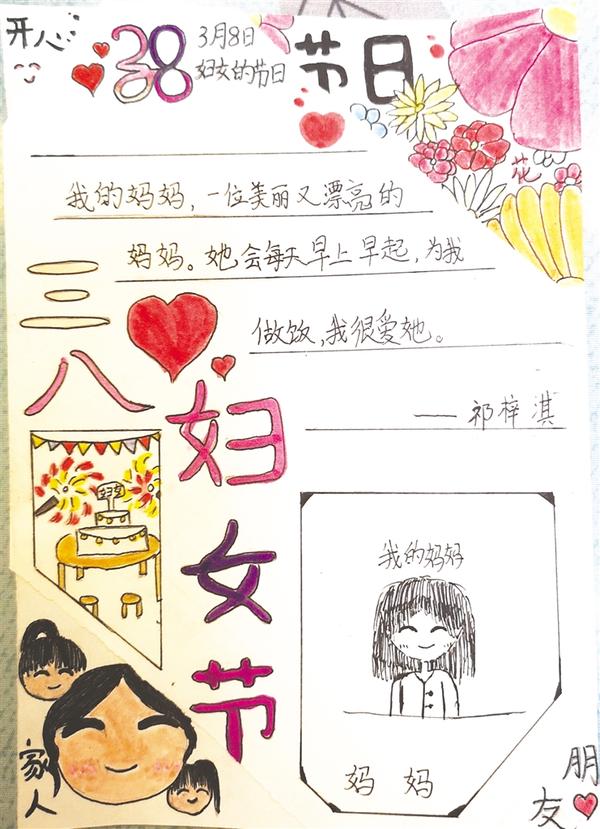 开人
38
3月8日
妇女的节日
节日
花
我的妈妈，一位美丽又漂亮的
妈妈。她会每天早上早起，为我
做饭，我很爱她。
——祁梓淇
三八妇女节
妇女
我的妈妈
妈妈
家人
朋友